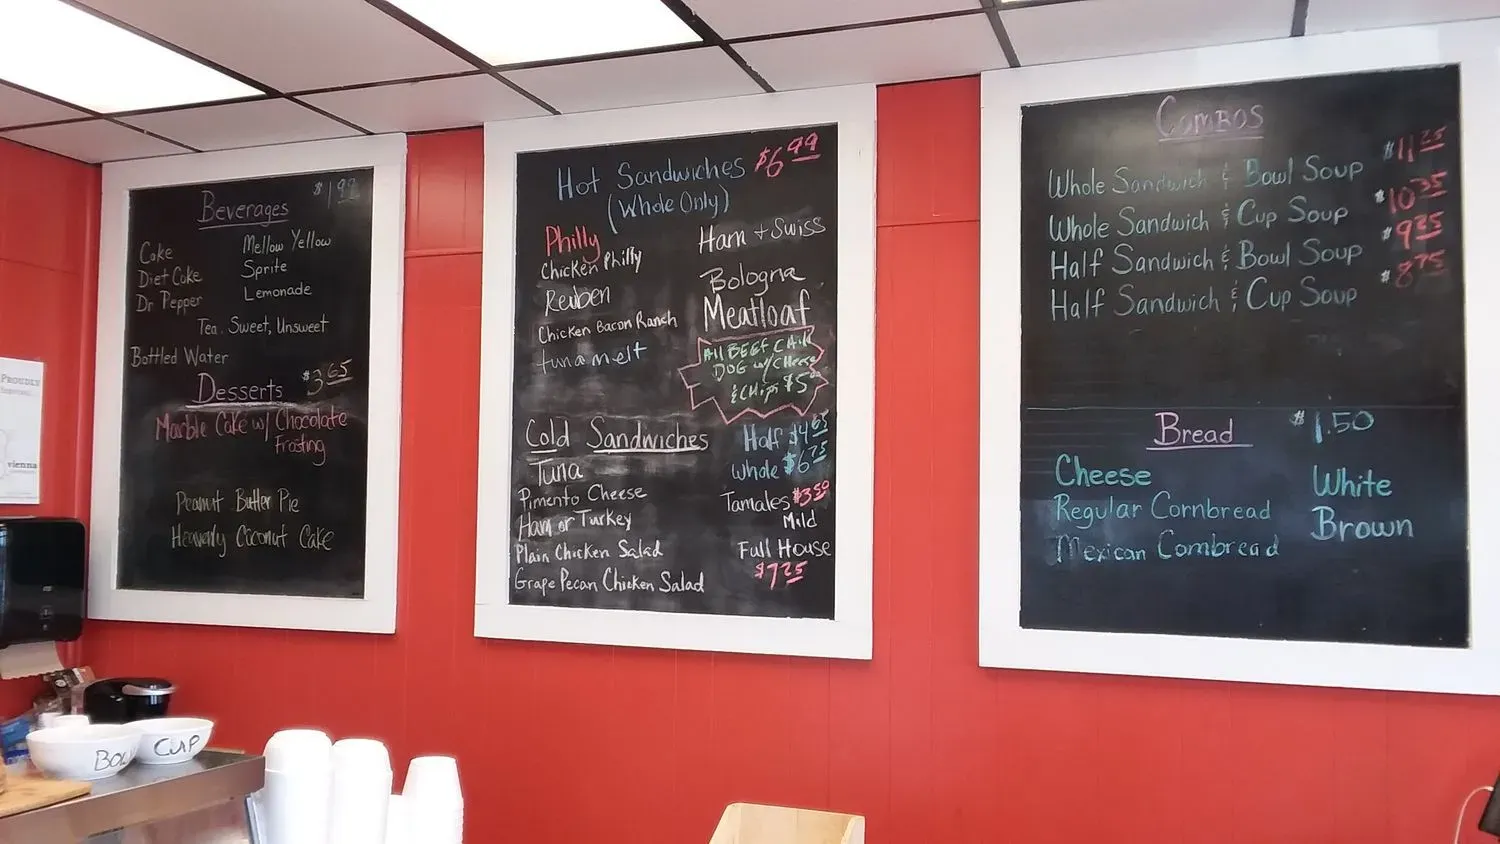 Beverages $1.99
Coke
Diet Coke
Dr Pepper
Mellow Yellow
Sprite
Lemonade
Tea: Sweet, Unsweet
Bottled Water
Desserts $3.65
Marble Cake w/ Chocolate
Frosting
Peanut Butter Pie
Heavenly Coconut Cake
Hot Sandwiches $6.99
(Whole Only)
Philly
Chicken Philly
Reuben
Chicken Bacon Ranch
tuna melt
Ham + Swiss
Bologna
Meatloaf
All BEEF Chili
DOG w/ Cheese
& Chips $5.00
Cold Sandwiches
Half $4.65
Whole $6.75
Tuna
Pimento Cheese
Ham or Turkey
Plain Chicken Salad
Grape Pecan Chicken Salad
Tamales $3.50
Mild
Full House
$7.25
Combos
Whole Sandwich & Bowl Soup $11.25
Whole Sandwich & Cup Soup $10.35
Half Sandwich & Bowl Soup $9.25
Half Sandwich & Cup Soup $8.75
Bread $1.50
Cheese
Regular Cornbread
Mexican Cornbread
White
Brown
Proudly
vienna
BOWL
CUP